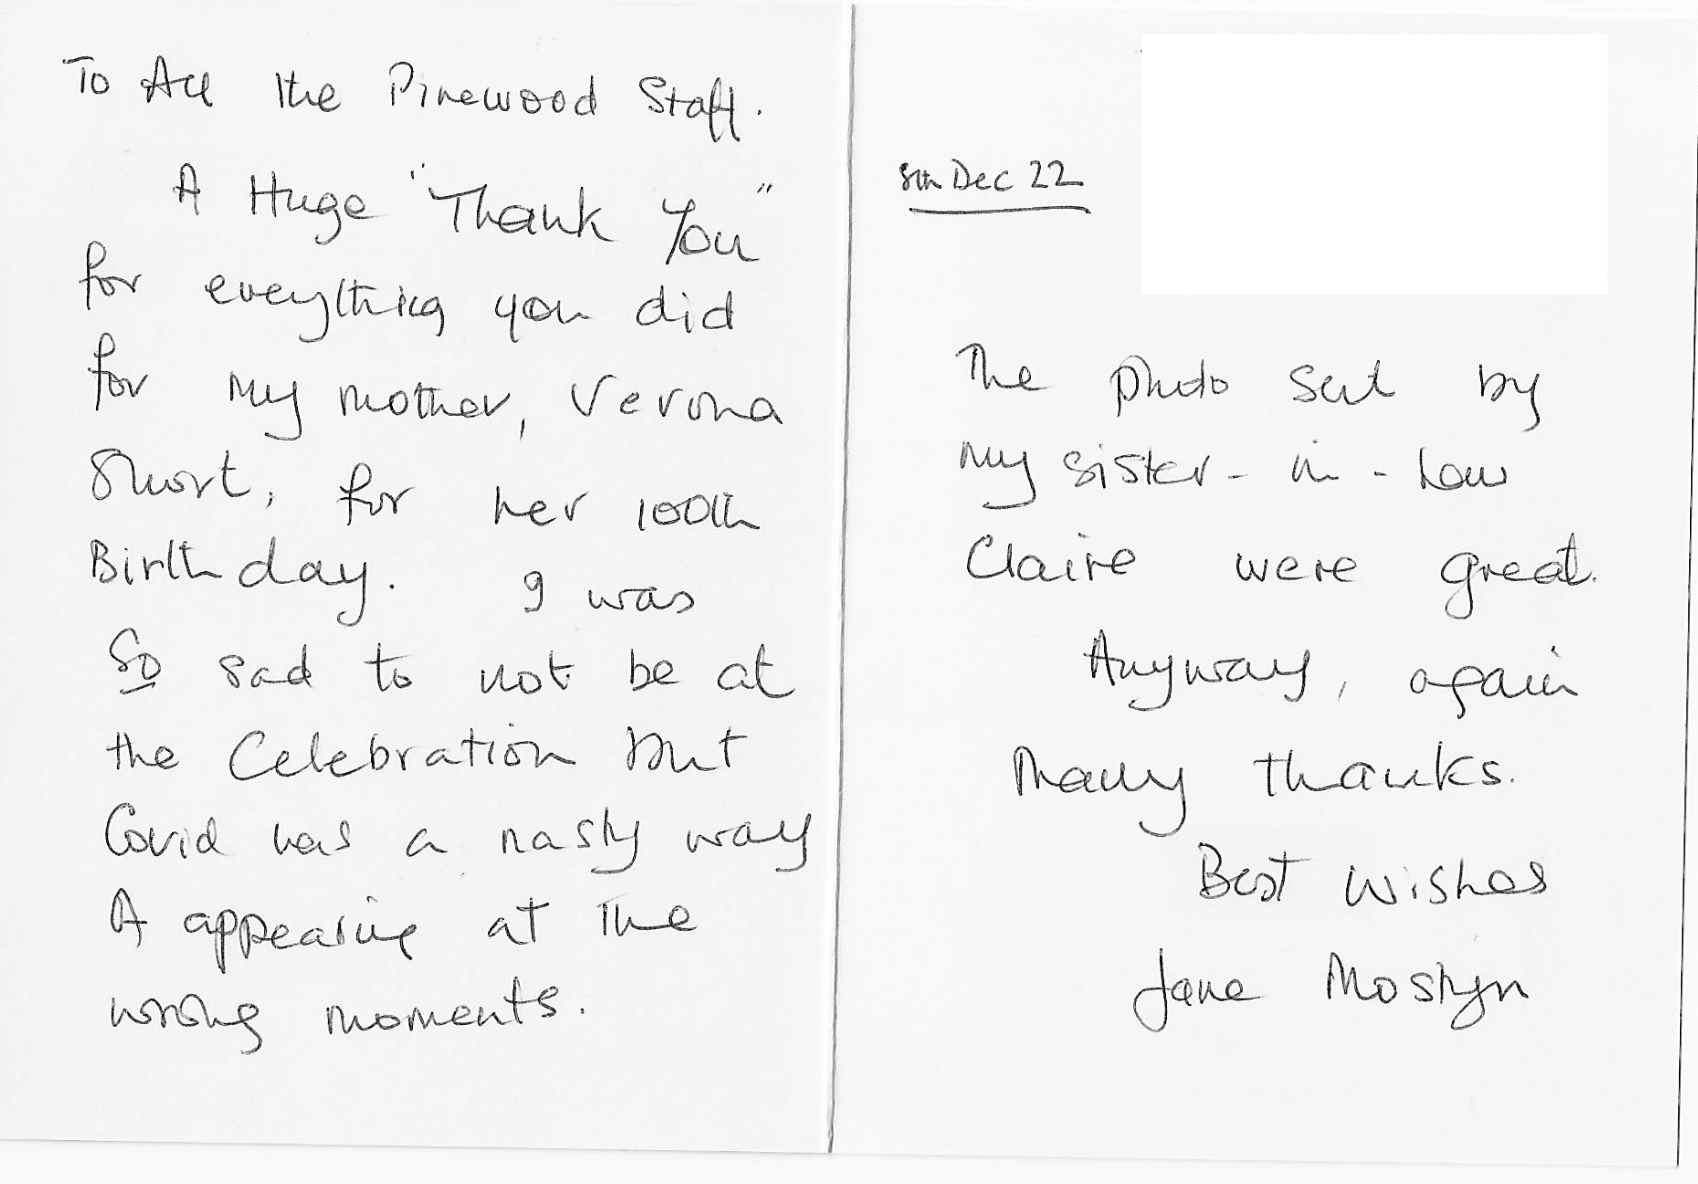 To All the Pinewood Staff.
A Huge "Thank You"
for everything you did
for my mother, Verona
Short, for her 100th
Birthday. I was
So sad to not be at
the Celebration but
Covid has a nasty way
of appearing at the
wrong moments.
8th Dec 22
The photo sent by
my sister-in-law
Claire were great.
Anyway, again
Many thanks.
Best Wishes
Jane Mostyn